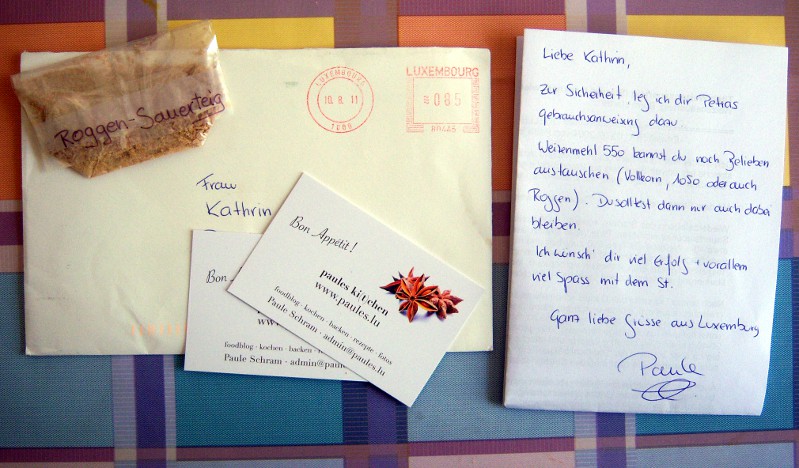 Roggen-Sauerteig
LUXEMBOURG
10.8.11
LUXEMBOURG
085
Frau
Kathrin
Bon Appétit!
paules ki(t)chen
www.paules.lu
foodblog · kochen · backen · rezepte · fotos
Paule Schram · admin@paules.lu
Bon
foodblog · kochen · backen ·
Paule Schram · admin@paule
Liebe Kathrin,
zur Sicherheit, leg ich dir Petras
Gebrauchsanweisung dazu.
Weizenmehl 550 kannst du nach Belieben
austauschen (Vollkorn, 1050 oder auch
Roggen). Du solltest dann nur auch dabei
bleiben.
Ich wünsch' dir viel Erfolg + vorallem
viel Spass mit dem ST.
Ganz liebe Grüsse aus Luxemburg
Paule